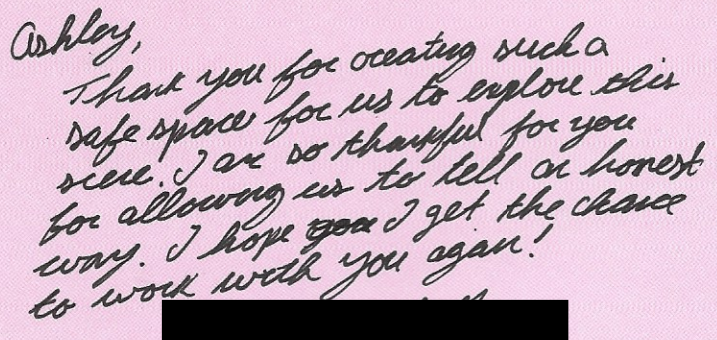 Ashley,
Thank you for creating such a
safe space for us to explore this
piece. I am so thankful for you
for allowing us to tell an honest
way. I hope I get the chance
to work with you again!